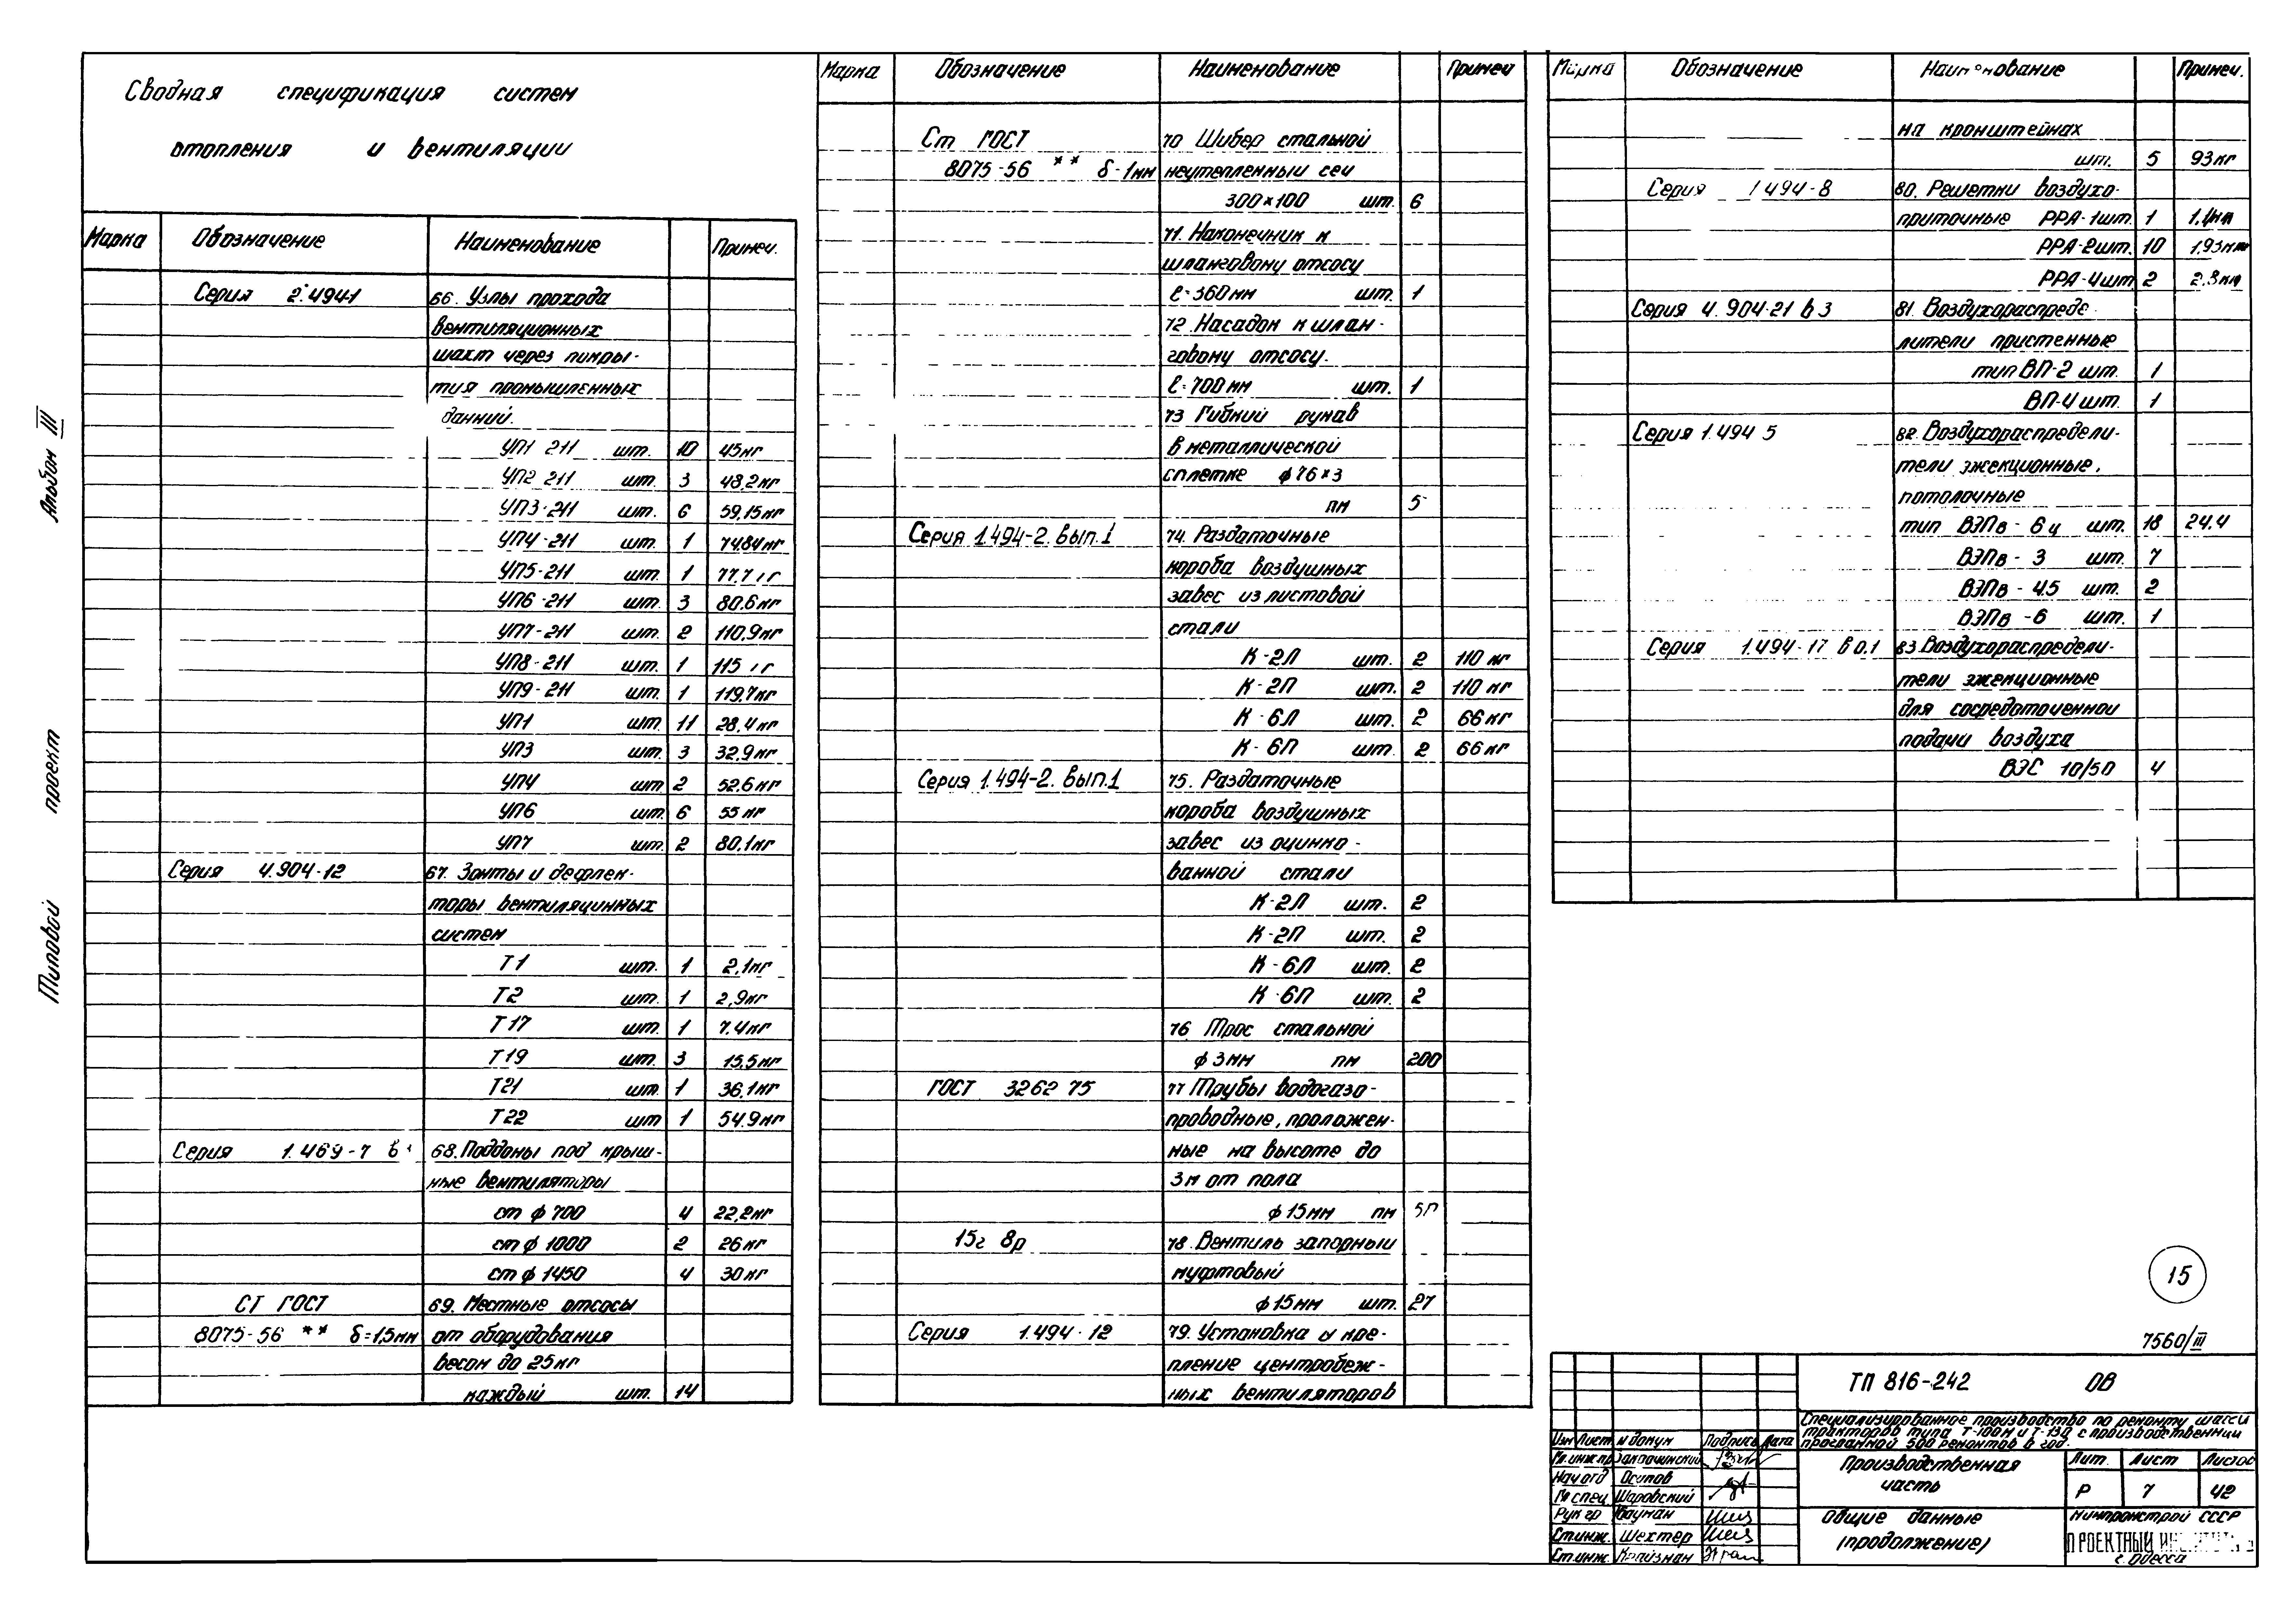 Сводная спецификация систем
отопления и вентиляции
Марка Обозначение Наименование Примеч.
Серия 2.494-1 66. Узлы прохода
вентиляционных
шахт через покры-
тия промышленных
зданий.
УП1 211 шт. 10 45кг
УП2 211 шт. 3 48,2кг
УП3-211 шт. 6 59,15кг
УП4-211 шт. 1 74,84кг
УП5-211 шт. 1 77,7
УП6-211 шт. 3 80.6кг
УП7-211 шт. 2 110,9кг
УП8-211 шт. 1 115
УП9-211 шт. 1 119,7кг
УП1 шт. 11 28,4кг
УП3 шт. 3 32,9кг
УП4 шт 2 52.6кг
УП6 шт. 6 55 кг
УП7 шт. 2 80,1кг
Серия 4.904-12 67. Зонты и дефлек-
торы вентиляционных
систем
Т1 шт. 1 2,1кг
Т2 шт. 1 2,9кг
Т17 шт. 1 7.4кг
Т19 шт. 3 15,5кг
Т21 шт. 1 36,1кг
Т22 шт 1 54.9кг
Серия 1.469-7 в 68. Поддоны под крыш-
ные вентиляторы
ст ф 700 4 22,2кг
ст ф 1000 2 26кг
ст ф 1450 4 30кг
СТ ГОСТ 69. Местные отсосы
8075-56 ** δ=1,5мм от оборудования
весом до 25кг
каждый шт. 14
Марка Обозначение Наименование Примеч
Ст ГОСТ 70 Шибер стальной
8075-56 ** δ-1мм неутепленный сеч
300×100 шт. 6
71. Наконечник к
шланговому отсосу
ℓ=360мм шт. 1
72. Насадок к шлан-
говому отсосу.
ℓ=700мм шт. 1
73 Гибкий рукав
в металлической
сплетке ф 76×3
пм 5
Серия 1.494-2. вып.1 74. Раздаточные
короба воздушных
завес из листовой
стали
К-2Л шт. 2 110 кг
К-2П шт. 2 110 кг
К-6Л шт. 2 66кг
К-6П шт. 2 66кг
Серия 1.494-2. вып.1 75. Раздаточные
короба воздушных
завес из оцинко-
ванной стали
К-2Л шт. 2
К-2П шт. 2
К-6Л шт. 2
К-6П шт. 2
76 Трос стальной
ф 3мм пм 200
ГОСТ 3262 75 77 Трубы водогазо-
проводные, проложен-
ные на высоте до
3м от пола
ф 15мм пм 50
15г 8р 78. Вентиль запорный
муфтовый
ф 15мм шт. 27
Серия 1.494-12 79. Установка и кре-
пление центробеж-
ных вентиляторов
Марка Обозначение Наименование Примеч.
на кронштейнах
шт. 5 93кг
Серия 1 494-8 80. Решетки воздухо-
приточные РРА-1шт. 1 1.4кг
РРА-2шт. 10 1.93кг
РРА-4шт 2 2.3кг
Серия 4.904-21 в 3 81. Воздухораспреде-
лители пристенные
тип ВП-2 шт. 1
ВП-4 шт. 1
Серия 1.494 5 82. Воздухораспредели-
тели эжекционные,
потолочные
тип ВЭПв-6ц шт. 18 24.4
ВЭПв-3 шт. 7
ВЭПв-4.5 шт. 2
ВЭПв-6 шт. 1
Серия 1.494-17 в 0.1 83. Воздухораспредели-
тели эжекционные
для сосредоточенной
подачи воздуха
ВЭС 10/50 4
Альбом III
проект
Типовой
15
7560/III
ТП 816-242 ОВ
Специализированное производство по ремонту шасси
тракторов типа Т-100М и Т-130 с производственной
программой 500 ремонтов в год.
Изм Лист № докум Подпись Дата
Гл. инж. пр
Нач отд Осипов
Гл спец Шаровский
Рук гр Науман
Ст. инж. Шехтер
Ст инж. Крайзман
Производственная
часть
Лит. Лист Листов
Р 7 42
Общие данные
(продолжение)
Минпромстрой СССР
ПРОЕКТНЫЙ
г. Одесса